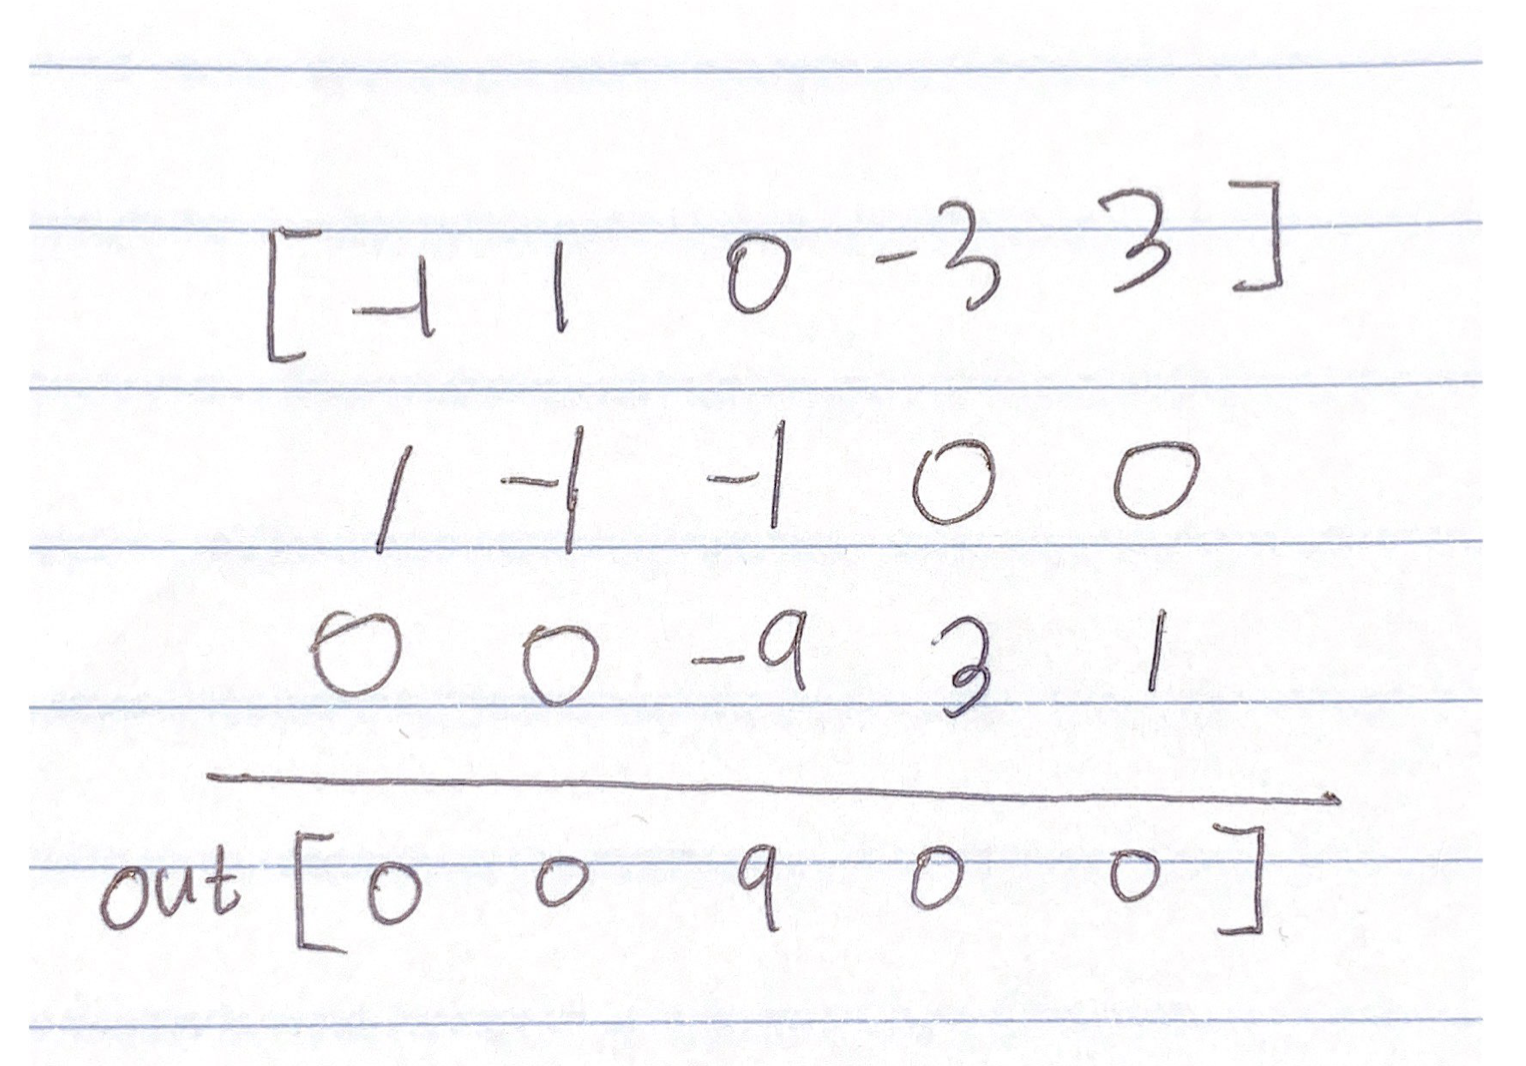 [ -1 1 0 -3 3 ]
1 -1 -1 0 0
0 0 -9 3 1
out [ 0 0 9 0 0 ]